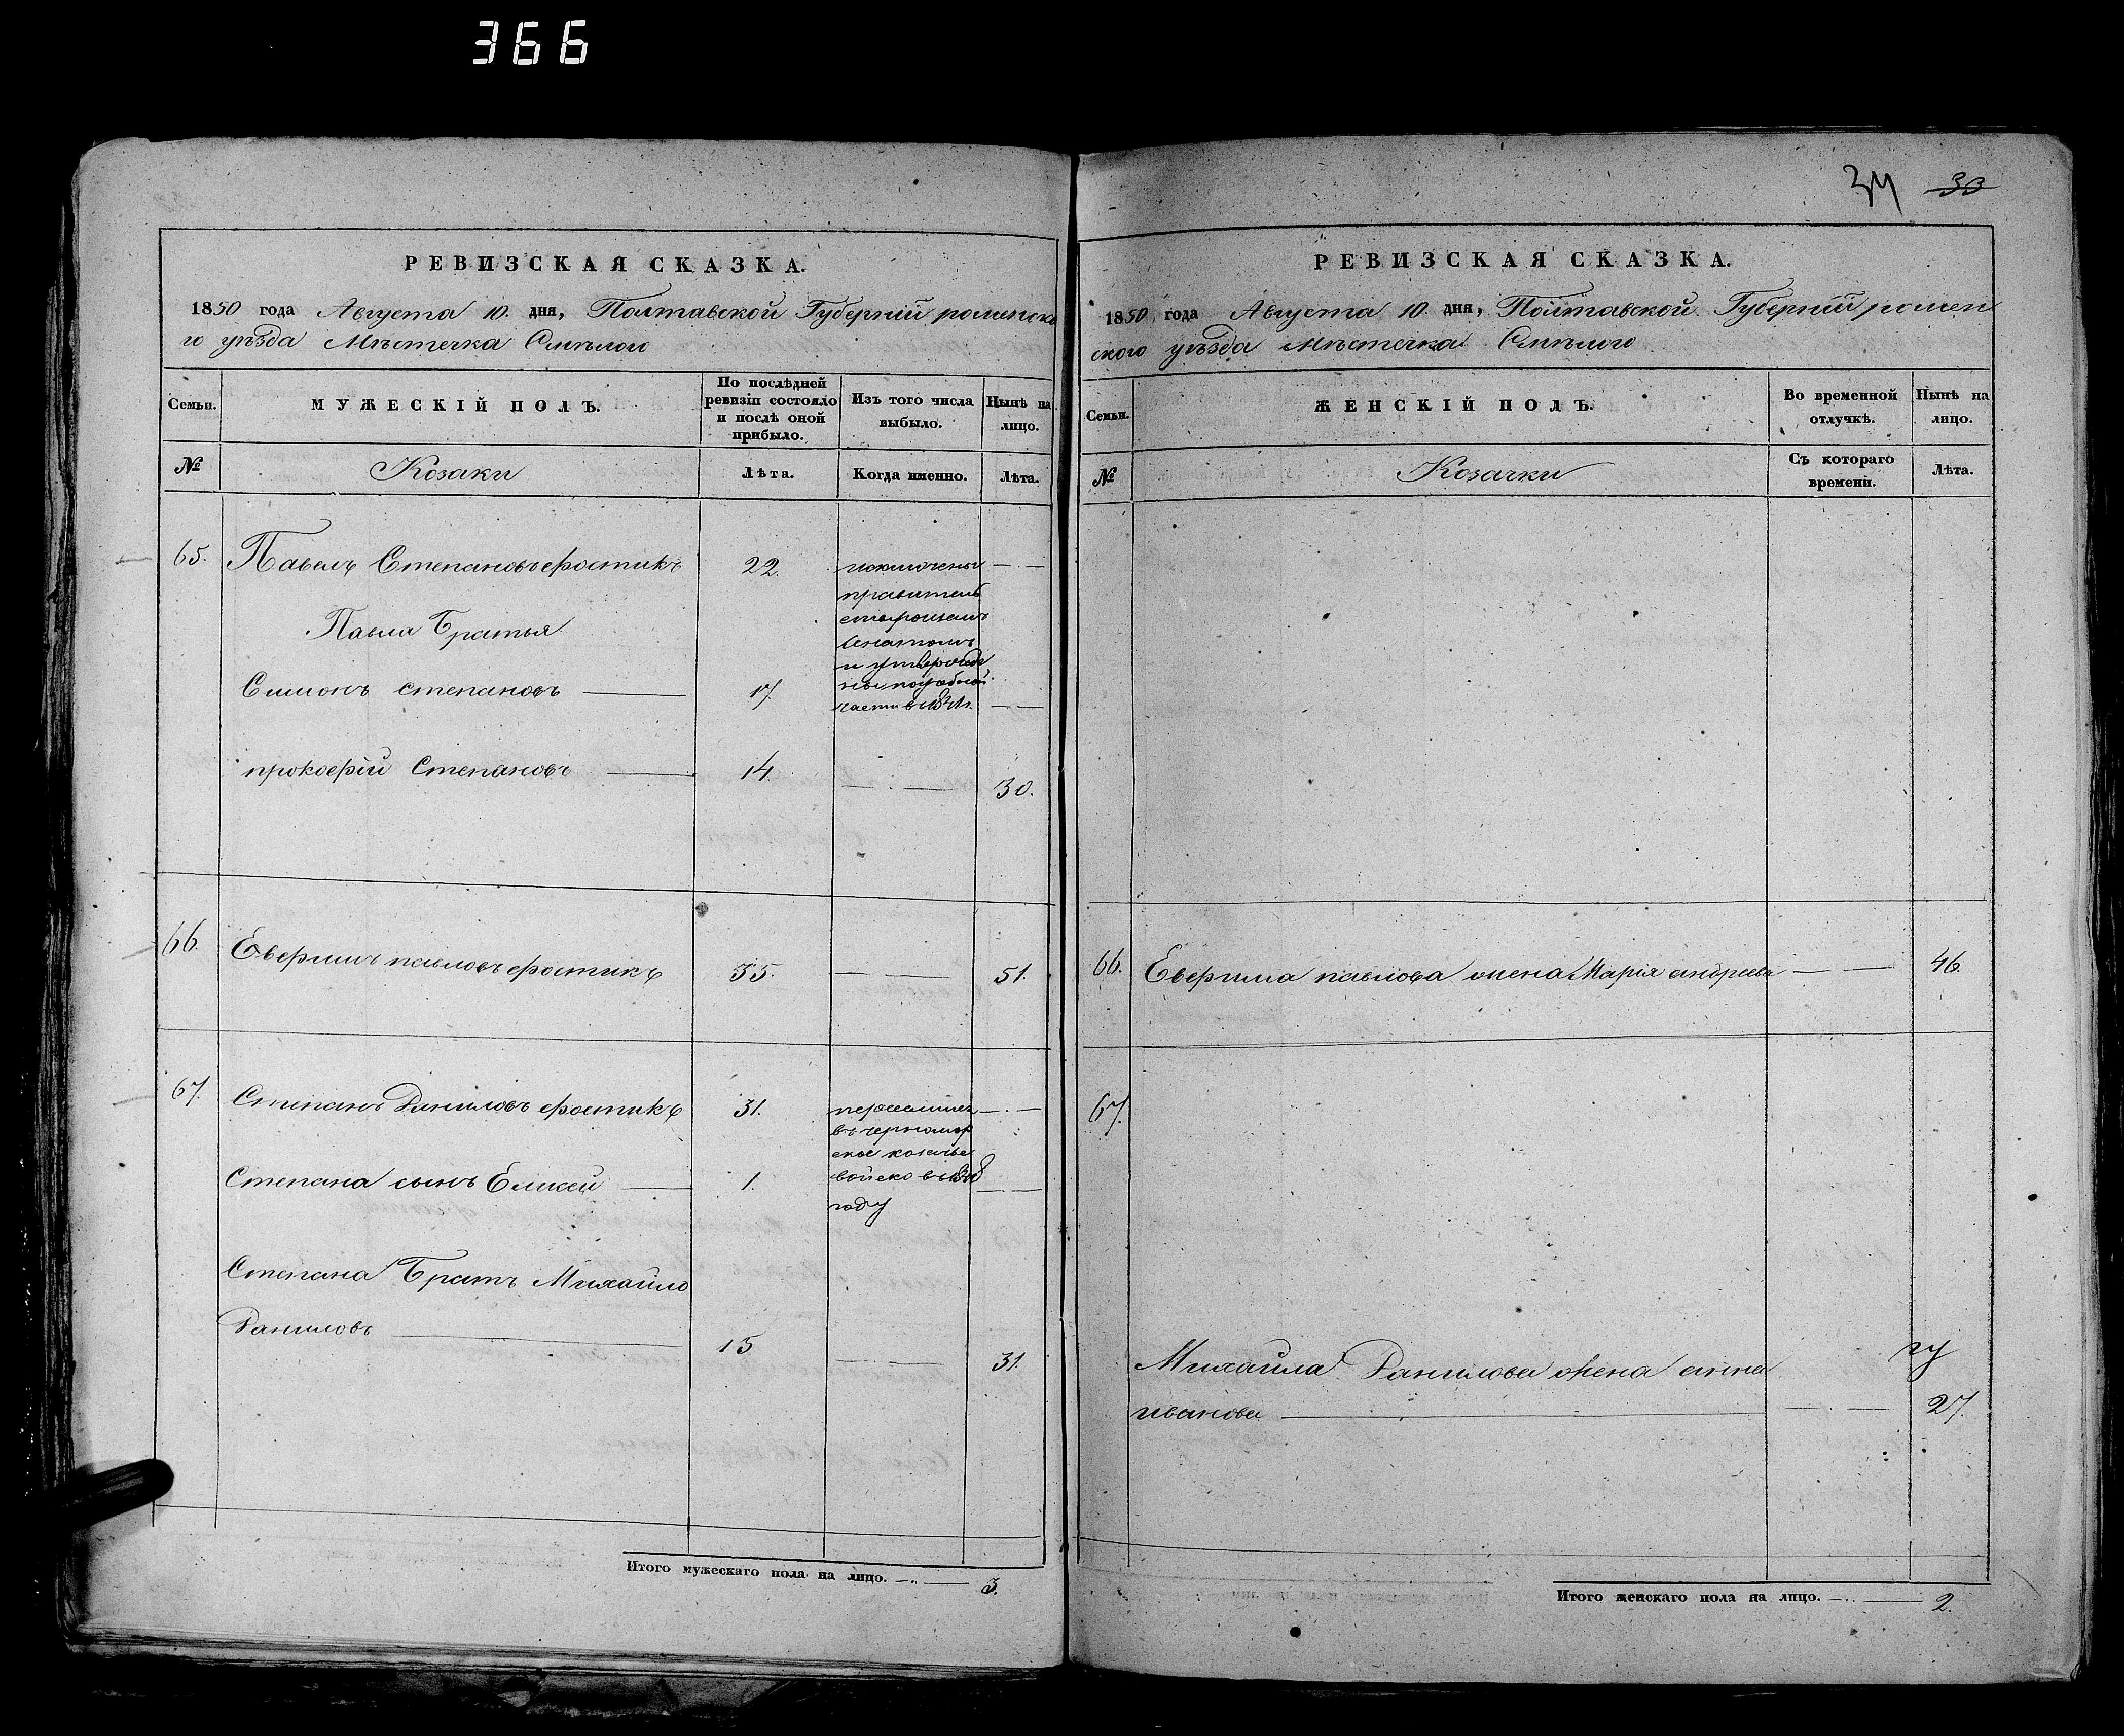 366
34 33
РЕВИЗСКАЯ СКАЗКА.
1850 года Августа 10. дня, Полтавской Губерніи роменско
го уѣзда Мѣстечка Смѣлого
Семьи.
МУЖЕСКІЙ ПОЛЪ.
По послѣдней
ревизіи состояло
и послѣ оной
прибыло.
Изъ того числа
выбыло.
Нынѣ на
лицо.
№
Козаки
Лѣта.
Когда именно.
Лѣта.
65. Павелъ Степановъ фостикъ 22. исключены
правитель
Павла Братья
сенатомъ
Симионъ степановъ 17.
прокофій Степановъ 14. 30.
66. Евфимъ павловъ фостикъ 35. 51.
67. Степанъ Даниловъ фостикъ 31.
въ черномор
ское козачье
Степана сынъ Елисей 1. войско в 1848
году
Степана Братъ Михайло
Даниловъ 15 31.
Итого мужескаго пола на лицо. 3.
РЕВИЗСКАЯ СКАЗКА.
1850 года Августа 10. дня, Полтавской Губерніи ромен
ского уѣзда Мѣстечка Смѣлого
Семьи.
ЖЕНСКІЙ ПОЛЪ.
Во временной
отлучкѣ.
Нынѣ на
лицо.
№
Козачки
Съ котораго
времени.
Лѣта.
66. Евфима павлова жена Марія андреева 46.
67.
Михайла Данилова жена анна
иванова 27.
Итого женскаго пола на лицо. 2.